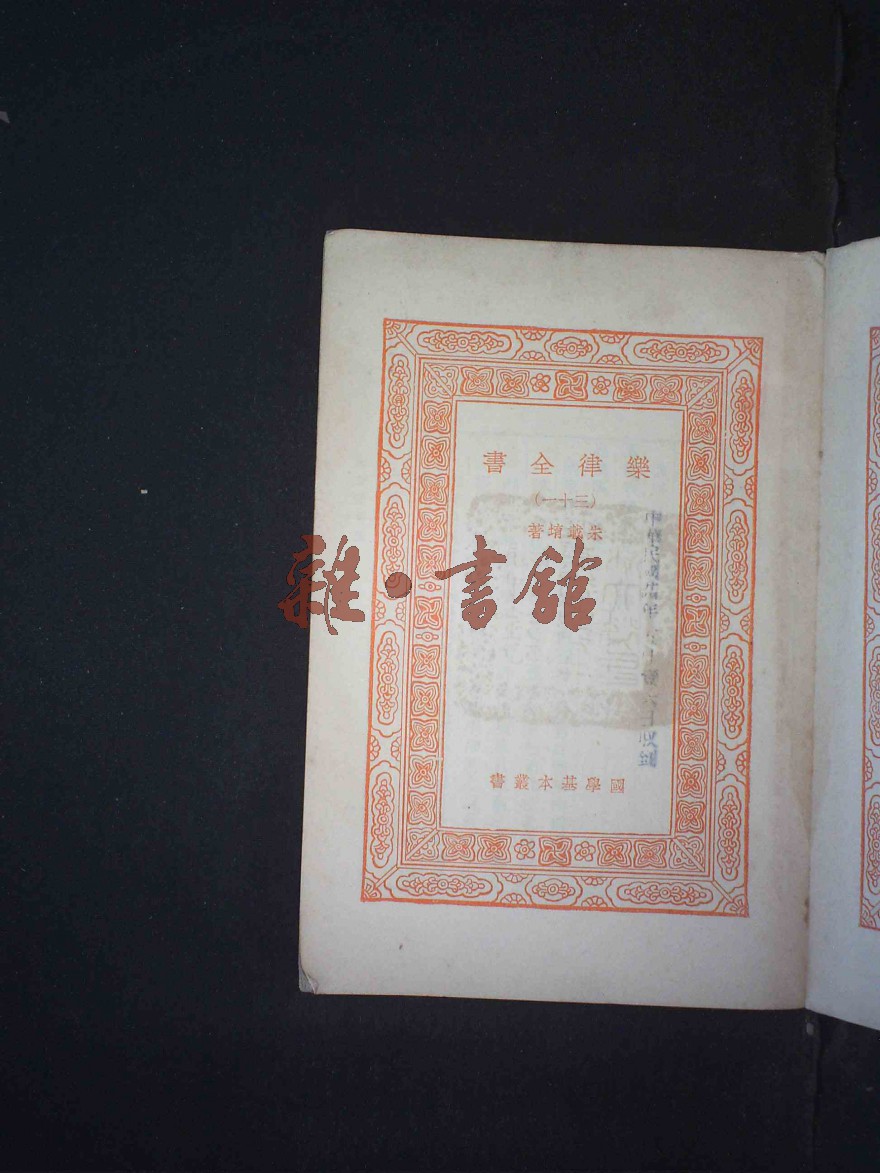 樂律全書
(三十一)
朱載堉著
雜·書館
國學基本叢書
中華民國
收到